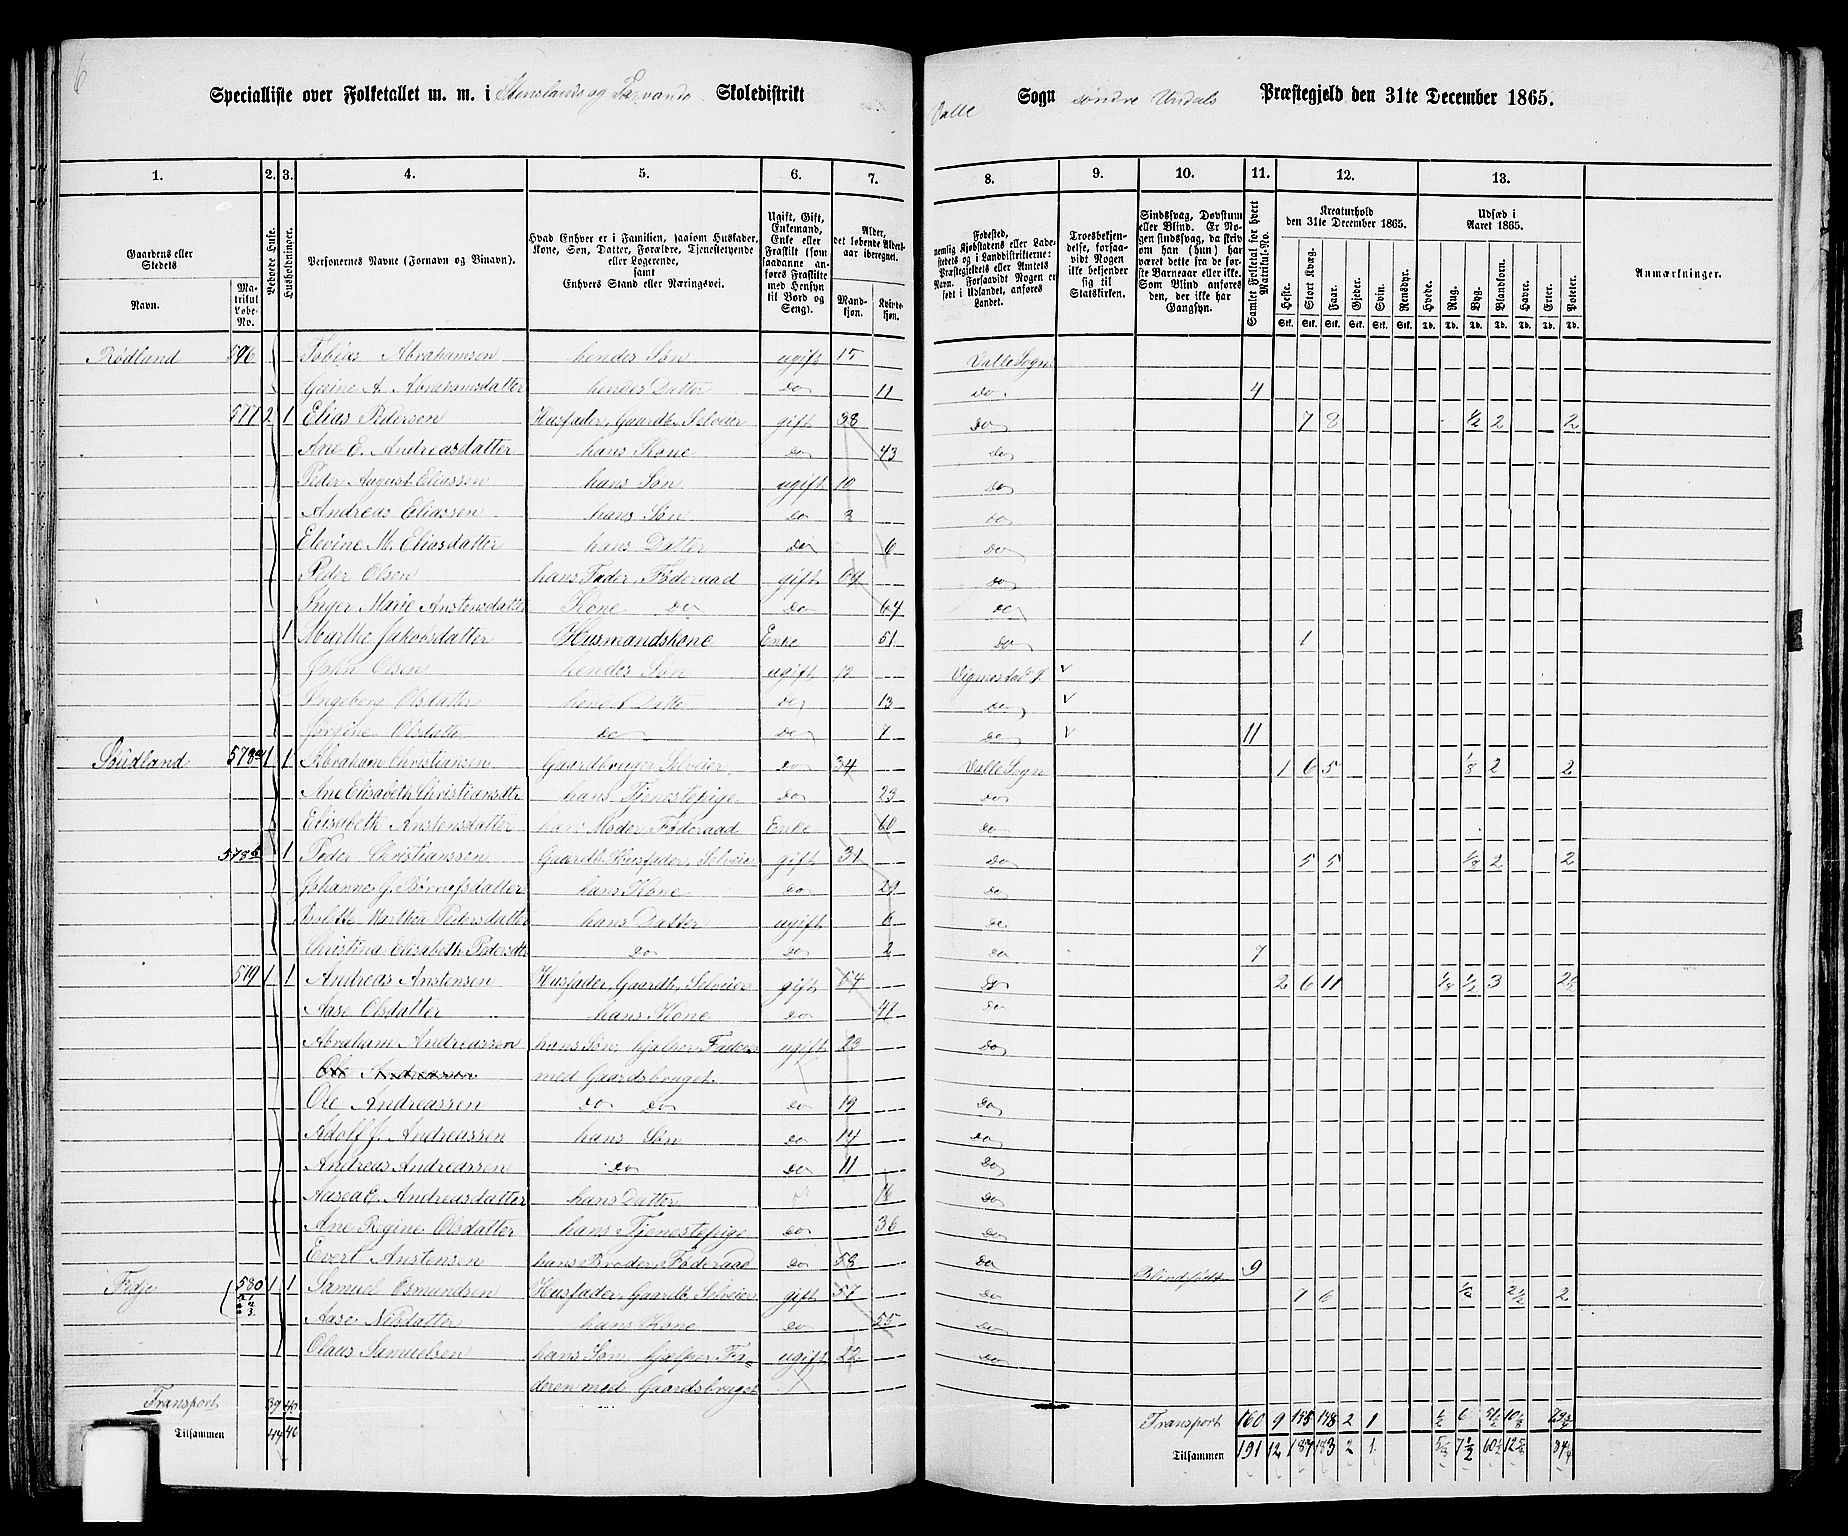 6
Specialliste over Folketallet m. m. i Stenslands og Skoledistrikt
Valle Sogn søndre Undals Præstegjeld den 31te December 1865.
1. 2. 3. 4. 5. 6. 7. 8. 9. 10. 11. 12. 13.
Gaardens eller Stedets Navn. Matrikul Løbe-No. Beboede Huse. Husholdninger. Personernes Navne (Fornavn og Binavn).
Hvad Enhver er i Familien, saasom Husfader, Kone, Søn, Datter, Forældre, Tjenestetyende eller Logerende, samt Enhvers Stand eller Næringsvei.
Ugift, Gift, Enkemand, Enke eller Fraskilt (som saadanne anføres Fraskilte med Hensyn til Bord og Seng).
Alder, det løbende Aldersaar iberegnet. Mandkjøn. Kvindekjøn.
Fødested, nemlig Kjøbstadens eller Ladestedets og i Landdistrikterne: Præstegjeldets eller Amtets Navn. Forsaavidt Nogen er født i Udlandet, anføres Landet.
Troesbekjendelse, forsaavidt Nogen ikke bekjender sig til Statskirken.
Sindssvag, Døvstum eller Blind. Er Nogen sindssvag, da skriv om han (hun) har været dette fra de første Barneaar eller ikke. Som Blind anføres den, der ikke har Gangsyn.
Samlet Folketal for hvert Matrikul-No.
Kreaturhold den 31te December 1865. Heste. Stort Kvæg. Faar. Gjeder. Svin. Rensdyr.
Udsæd i Aaret 1865. Hvede. Rug. Byg. Blandkorn. Havre. Erter. Poteter.
Anmærkninger.
Rødland 576 Tobias Abrahamsen hendes Søn ugift 15 Valle Sogn
Abrahamsdatter hendes Datter do 11 do 4
577 2 1 Elias Pedersen Husfader, Gaardb. Selveier gift 38 do 7 8 1/2 2 2
Ane E. Andreasdatter hans Kone do 43 do
Peder August Eliassen hans Søn ugift 10 do
Andreas Eliassen hans Søn do 3 do
Elevine M. Eliasdatter hans Datter do 6 do
Peder Olsen hans Fader, Føderaad gift 69 do
Inger Marie Anstensdatter Kone do do 64 do
1 Marthe Jakobsdatter Husmandskone Enke 51 do 1
John Olsen hendes Søn ugift 12 Vigmostad
Ingeborg Olsdatter hendes Datter do 13 do
Olsdatter do do 7 do 11
Søudland 578a 1 1 Abraham Christiansen Gaardbruger Selveier do 34 Valle Sogn 1 6 5 1/8 2 2
Ane Elisabeth Christiansdtr hans Tjenestepige do 23 do
Elisabeth Anstensdatter hans Moder, Føderaad Enke 60 do
578b 1 Peder Christianssen Gaardb. Husfader, Selveier gift 31 do 5 5 1/8 2 2
Johanne G. hans Kone do 29 do
Marthea Pedersdatter hans Datter ugift 6 do
Christina Elisabeth Pedersdtr do do 2 do 7
579 1 1 Andreas Anstensen Husfader, Gaardb. Selveier gift 54 do 2 6 11 1/8 1/2 3
Aase Olsdatter hans Kone do 47 do
Abraham Andreassen hans Søn, hjelper Faderen ugift 23 do
Ole Andreassen med Gaardsbruget
Ole Andreassen do do do 19 do
Adolf J. Andreassen hans Søn do 14 do
Andreas Andreassen do do 11 do
Aasea E. Andreasdatter hans Datter 16 do
Ane Regine Olsdatter hans Tjenestepige do 36 do
Evert Anstensen hans Broder, Føderaad do 58 do Blindfødt 9
Fidje 580 1 1 Samuel Osmundsen Husfader, Gaardb. Selveier gift 57 do 7 6 1/2 2 1/2 2
Aase Nilsdatter hans Kone do 55 do
Olaus Samuelsen hans Søn hjelper Fa- ugift 22 do
deren med Gaardsbruget
Transport 39 40 Transport 160 9 175 178 2 1 1/2 6
Tilsammen 44 46 Tilsammen 191 12 187 183 2 1